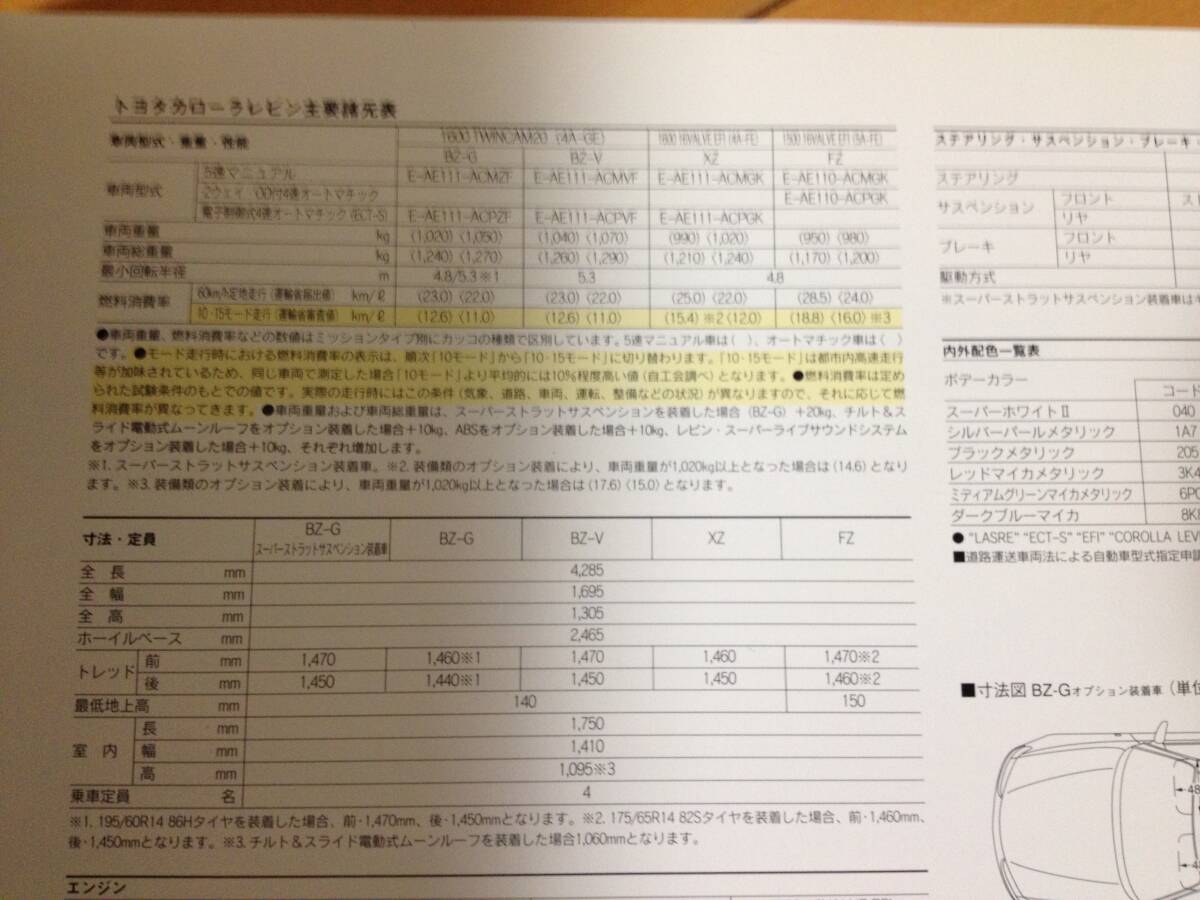 トヨタカローラレビン主要諸元表
車両型式・重量・性能 1600 TWINCAM20 (4A-GE) 1600 16VALVE EFI (4A-FE) 1500 16VALVE EFI (5A-FE)
BZ-G BZ-V XZ FZ
車両型式 5速マニュアル E-AE111-ACMZF E-AE111-ACMVF E-AE111-ACMGK E-AE110-ACMGK
2ウェイ・OD付4速オートマチック E-AE110-ACPGK
電子制御式4速オートマチック(ECT-S) E-AE111-ACPZF E-AE111-ACPVF E-AE111-ACPGK
車両重量 kg (1,020)〈1,050〉 (1,040)〈1,070〉 (990)〈1,020〉 (950)〈980〉
車両総重量 kg (1,240)〈1,270〉 (1,260)〈1,290〉 (1,210)〈1,240〉 (1,170)〈1,200〉
最小回転半径 m 4.8/5.3※1 5.3 4.8
燃料消費率 60km/h定地走行(運輸省届出値) km/ℓ (23.0)〈22.0〉 (23.0)〈22.0〉 (25.0)〈22.0〉 (28.5)〈24.0〉
10・15モード走行(運輸省審査値) km/ℓ (12.6)〈11.0〉 (12.6)〈11.0〉 (15.4)※2〈12.0〉 (18.8)〈16.0〉※3
●車両重量、燃料消費率などの数値はミッションタイプ別にカッコの種類で区別しています。5速マニュアル車は( )、オートマチック車は〈 〉
です。●モード走行時における燃料消費率の表示は、順次「10モード」から「10・15モード」に切り替わります。「10・15モード」は都市内高速走行
等が加味されているため、同じ車両で測定した場合「10モード」より平均的には10%程度高い値(自工会調べ)となります。●燃料消費率は定め
られた試験条件のもとでの値です。実際の走行時にはこの条件(気象、道路、車両、運転、整備などの状況)が異なりますので、それに応じて燃
料消費率が異なってきます。●車両重量および車両総重量は、スーパーストラットサスペンションを装着した場合(BZ-G)+20kg、チルト&ス
ライド電動式ムーンルーフをオプション装着した場合+10kg、ABSをオプション装着した場合+10kg、レビン・スーパーライブサウンドシステム
をオプション装着した場合+10kg、それぞれ増加します。
※1. スーパーストラットサスペンション装着車。※2. 装備類のオプション装着により、車両重量が1,020kg以上となった場合は(14.6)となり
ます。※3. 装備類のオプション装着により、車両重量が1,020kg以上となった場合は(17.6)〈15.0〉となります。
寸法・定員 BZ-G スーパーストラットサスペンション装着車 BZ-G BZ-V XZ FZ
全長 mm 4,285
全幅 mm 1,695
全高 mm 1,305
ホイールベース mm 2,465
トレッド 前 mm 1,470 1,460※1 1,470 1,460 1,470※2
後 mm 1,450 1,440※1 1,450 1,450 1,460※2
最低地上高 mm 140 150
室内 長 mm 1,750
幅 mm 1,410
高 mm 1,095※3
乗車定員 名 4
※1. 195/60R14 86Hタイヤを装着した場合、前・1,470mm、後・1,450mmとなります。※2. 175/65R14 82Sタイヤを装着した場合、前・1,460mm、
後・1,450mmとなります。※3. チルト&スライド電動式ムーンルーフを装着した場合1,060mmとなります。
エンジン
ステアリング・サスペンション・ブレーキ・
ステアリング
サスペンション フロント
リヤ
ブレーキ フロント
リヤ
駆動方式
※スーパーストラットサスペンション装着車は
内外配色一覧表
ボデーカラー コード
スーパーホワイトII 040
シルバーパールメタリック 1A7
ブラックメタリック 205
レッドマイカメタリック 3K4
ミディアムグリーンマイカメタリック
ダークブルーマイカ
● "LASRE" "ECT-S" "EFI" "COROLLA LEV
■道路運送車両法による自動車型式指定申請
■寸法図 BZ-G オプション装着車 (単位